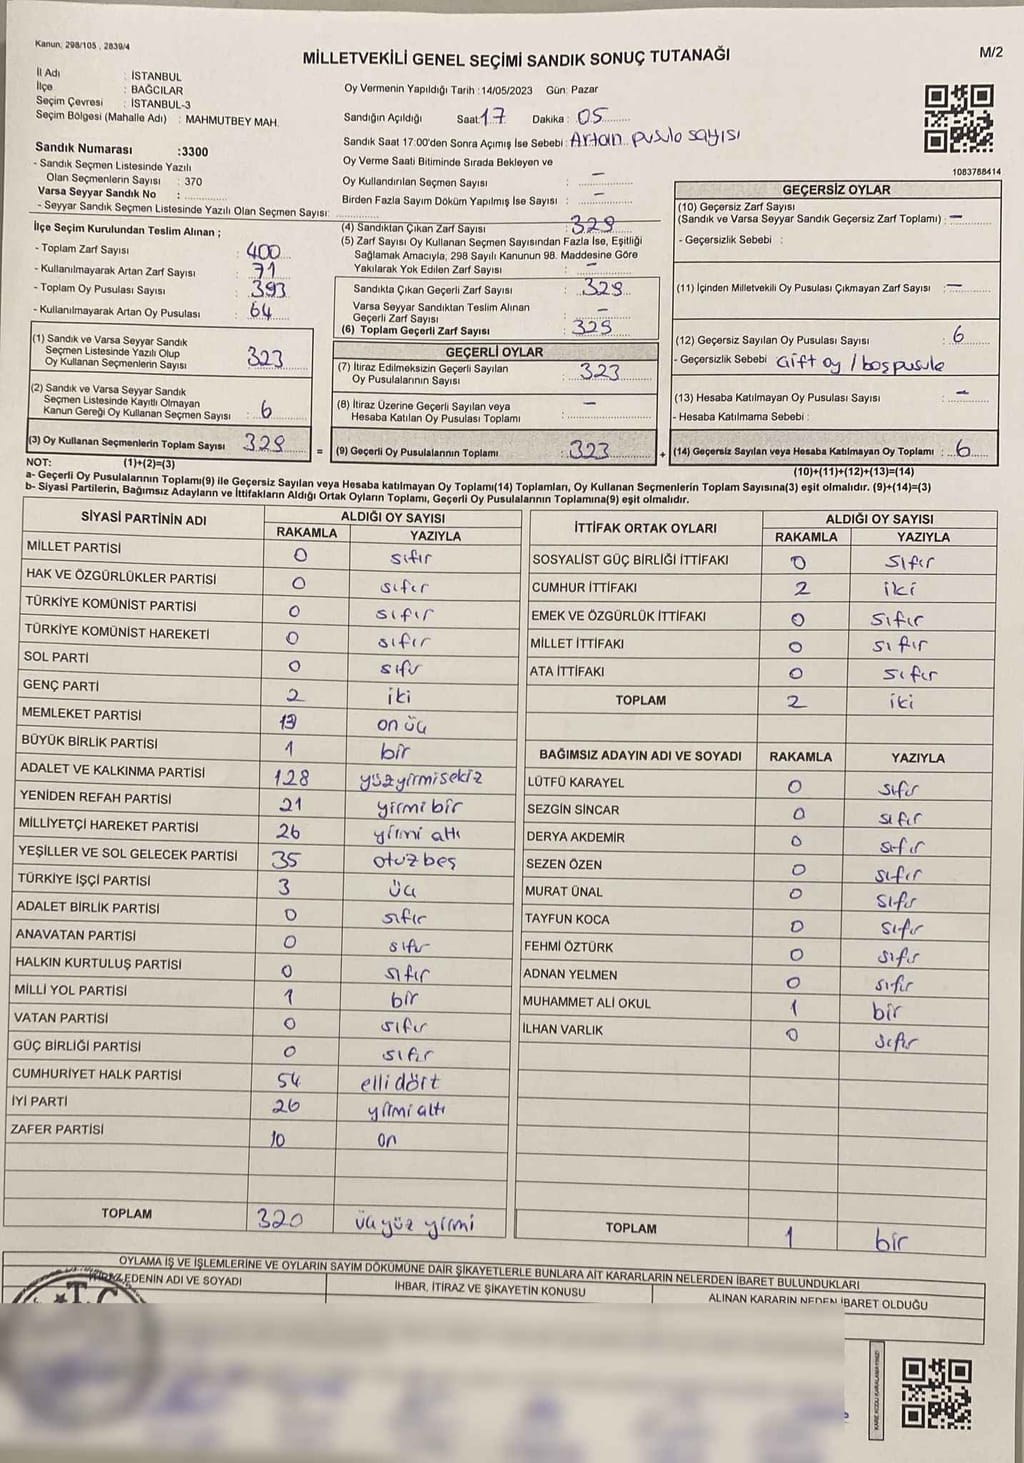 Kanun; 298/105 , 2839/4
MİLLETVEKİLİ GENEL SEÇİMİ SANDIK SONUÇ TUTANAĞI
M/2
İl Adı : İSTANBUL
İlçe : BAĞCILAR
Seçim Çevresi : İSTANBUL-3
Seçim Bölgesi (Mahalle Adı) : MAHMUTBEY MAH.
Sandık Numarası :3300
- Sandık Seçmen Listesinde Yazılı
Olan Seçmenlerin Sayısı : 370
Varsa Seyyar Sandık No :
- Seyyar Sandık Seçmen Listesinde Yazılı Olan Seçmen Sayısı:
Oy Vermenin Yapıldığı Tarih :14/05/2023 Gün: Pazar
Sandığın Açıldığı Saat: 17 Dakika : 05
Sandık Saat 17:00'den Sonra Açımış İse Sebebi : Artan pusula sayısı
Oy Verme Saati Bitiminde Sırada Bekleyen ve
Oy Kullandırılan Seçmen Sayısı : –
Birden Fazla Sayım Döküm Yapılmış İse Sayısı : –
1083788414
İlçe Seçim Kurulundan Teslim Alınan ;
- Toplam Zarf Sayısı : 400
- Kullanılmayarak Artan Zarf Sayısı : 71
- Toplam Oy Pusulası Sayısı : 393
- Kullanılmayarak Artan Oy Pusulası : 64
(1) Sandık ve Varsa Seyyar Sandık
Seçmen Listesinde Yazılı Olup
Oy Kullanan Seçmenlerin Sayısı : 323
(2) Sandık ve Varsa Seyyar Sandık
Seçmen Listesinde Kayıtlı Olmayan
Kanun Gereği Oy Kullanan Seçmen Sayısı : 6
(3) Oy Kullanan Seçmenlerin Toplam Sayısı 329 =
(1)+(2)=(3)
(4) Sandıktan Çıkan Zarf Sayısı : 329
(5) Zarf Sayısı Oy Kullanan Seçmen Sayısından Fazla İse, Eşitliği
Sağlamak Amacıyla, 298 Sayılı Kanunun 98. Maddesine Göre
Yakılarak Yok Edilen Zarf Sayısı : –
Sandıkta Çıkan Geçerli Zarf Sayısı : 329
Varsa Seyyar Sandıktan Teslim Alınan
Geçerli Zarf Sayısı : –
(6) Toplam Geçerli Zarf Sayısı : 329
GEÇERLİ OYLAR
(7) İtiraz Edilmeksizin Geçerli Sayılan
Oy Pusulalarının Sayısı : 323
(8) İtiraz Üzerine Geçerli Sayılan veya
Hesaba Katılan Oy Pusulası Toplamı : –
(9) Geçerli Oy Pusulalarının Toplamı : 323 +
GEÇERSİZ OYLAR
(10) Geçersiz Zarf Sayısı
(Sandık ve Varsa Seyyar Sandık Geçersiz Zarf Toplamı) : –
- Geçersizlik Sebebi :
(11) İçinden Milletvekili Oy Pusulası Çıkmayan Zarf Sayısı : –
(12) Geçersiz Sayılan Oy Pusulası Sayısı : 6
- Geçersizlik Sebebi Çift oy / boş pusula
(13) Hesaba Katılmayan Oy Pusulası Sayısı : –
- Hesaba Katılmama Sebebi :
(14) Geçersiz Sayılan veya Hesaba Katılmayan Oy Toplamı : 6
(10)+(11)+(12)+(13)=(14)
NOT:
a- Geçerli Oy Pusulalarının Toplamı(9) ile Geçersiz Sayılan veya Hesaba katılmayan Oy Toplamı(14) Toplamları, Oy Kullanan Seçmenlerin Toplam Sayısına(3) eşit olmalıdır. (9)+(14)=(3)
b- Siyasi Partilerin, Bağımsız Adayların ve İttifakların Aldığı Ortak Oyların Toplamı, Geçerli Oy Pusulalarının Toplamına(9) eşit olmalıdır.
SİYASİ PARTİNİN ADI ALDIĞI OY SAYISI
RAKAMLA YAZIYLA
MİLLET PARTİSİ 0 sıfır
HAK VE ÖZGÜRLÜKLER PARTİSİ 0 sıfır
TÜRKİYE KOMÜNİST PARTİSİ 0 sıfır
TÜRKİYE KOMÜNİST HAREKETİ 0 sıfır
SOL PARTİ 0 sıfır
GENÇ PARTİ 2 iki
MEMLEKET PARTİSİ 13 on üç
BÜYÜK BİRLİK PARTİSİ 1 bir
ADALET VE KALKINMA PARTİSİ 128 yüzyirmisekiz
YENİDEN REFAH PARTİSİ 21 yirmi bir
MİLLİYETÇİ HAREKET PARTİSİ 26 yirmi altı
YEŞİLLER VE SOL GELECEK PARTİSİ 35 otuz beş
TÜRKİYE İŞÇİ PARTİSİ 3 üç
ADALET BİRLİK PARTİSİ 0 sıfır
ANAVATAN PARTİSİ 0 sıfır
HALKIN KURTULUŞ PARTİSİ 0 sıfır
MİLLİ YOL PARTİSİ 1 bir
VATAN PARTİSİ 0 sıfır
GÜÇ BİRLİĞİ PARTİSİ 0 sıfır
CUMHURİYET HALK PARTİSİ 54 elli dört
İYİ PARTİ 26 yirmi altı
ZAFER PARTİSİ 10 on
TOPLAM 320 üçyüz yirmi
İTTİFAK ORTAK OYLARI ALDIĞI OY SAYISI
RAKAMLA YAZIYLA
SOSYALİST GÜÇ BİRLİĞİ İTTİFAKI 0 sıfır
CUMHUR İTTİFAKI 2 iki
EMEK VE ÖZGÜRLÜK İTTİFAKI 0 sıfır
MİLLET İTTİFAKI 0 sıfır
ATA İTTİFAKI 0 sıfır
TOPLAM 2 iki
BAĞIMSIZ ADAYIN ADI VE SOYADI RAKAMLA YAZIYLA
LÜTFÜ KARAYEL 0 sıfır
SEZGİN SİNCAR 0 sıfır
DERYA AKDEMİR 0 sıfır
SEZEN ÖZEN 0 sıfır
MURAT ÜNAL 0 sıfır
TAYFUN KOCA 0 sıfır
FEHMİ ÖZTÜRK 0 sıfır
ADNAN YELMEN 0 sıfır
MUHAMMET ALİ OKUL 1 bir
İLHAN VARLIK 0 sıfır
TOPLAM 1 bir
OYLAMA İŞ VE İŞLEMLERİNE VE OYLARIN SAYIM DÖKÜMÜNE DAİR ŞİKAYETLERLE BUNLARA AİT KARARLARIN NELERDEN İBARET BULUNDUKLARI
EDENİN ADI VE SOYADI İHBAR, İTİRAZ VE ŞİKAYETİN KONUSU ALINAN KARARIN NEDEN İBARET OLDUĞU
T.C
KARE KODU KARALAMAYINIZ!